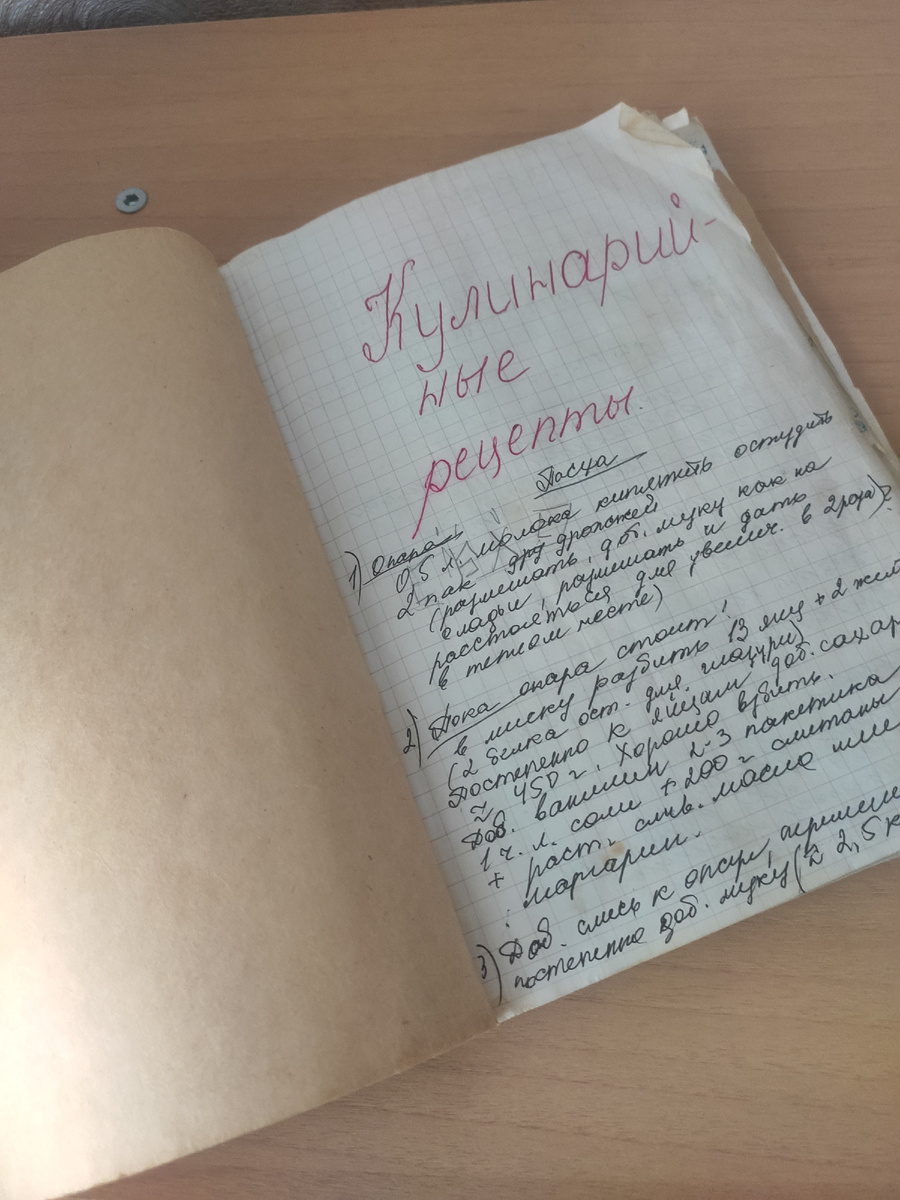 Кулинарий-
ные
рецепты.
Пасха
1) Опара
0,5 л. молока кипятить остудить
2 пак дрожжей
(размешать, доб. муку как на
оладьи, размешать и дать
расстояться для увелич. в 2 раза)
в теплом месте)
2) Пока опара стоит!
в миску разбить 13 яиц + 2 жел
(2 белка ост. для глазури)
Постепенно к яйцам доб. сахар
≈ 450 г. Хорошо взбить.
Доб. ванилин 2-3 пакетика
1 ч. л. соли + 200 г сметаны
+ раст. слив. масло или
маргарин.
3) Доб. смесь к опаре, переме
постепенно доб. муку (≈ 2,5 к